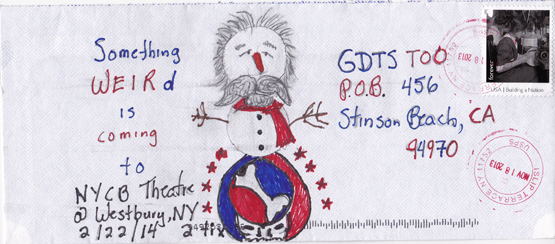 Something
WEIRd
is
coming
to
NYCB Theatre
@ Westbury, NY
2/22/14
GDTS TOO
P.O.B. 456
Stinson Beach, CA
94970
forever
USA | Building a Nation
18 2013
ISLIP TERRACE NY
NOV 18 2013
USPS